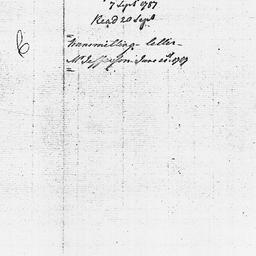 7 Sept 1787
Read 20 Sept
6
transmitting letter
Mr Jefferson June 20. 1787